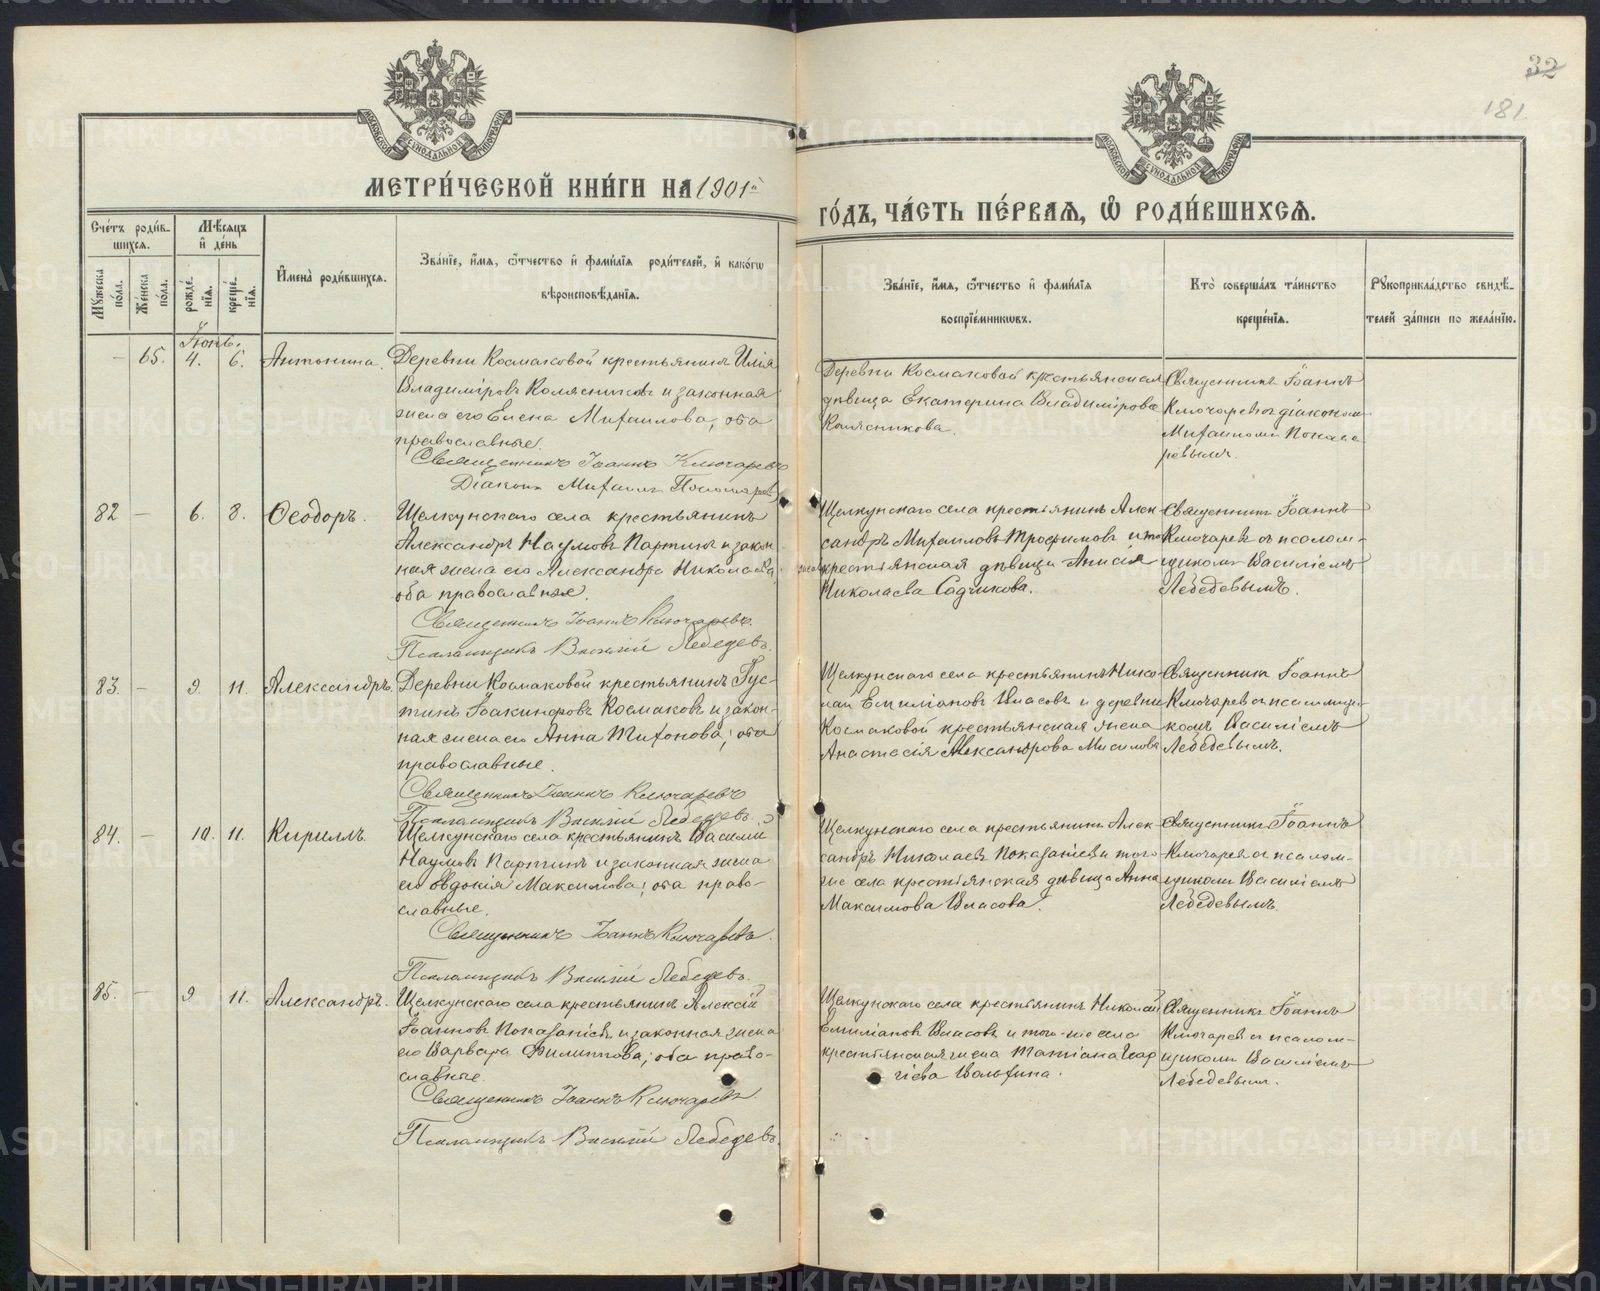 32
181.
МОСКОВСКОЙ СѴНОДАЛЬНОЙ ТИПОГРАФІИ
МОСКОВСКОЙ СѴНОДАЛЬНОЙ ТИПОГРАФІИ
МЕТРИ́ЧЕСКОЙ КНИ́ГИ НА 1901й
ГО́ДЪ, ЧА́СТЬ ПЕ́РВАЯ, Ѡ РОДИ́ВШИХСЯ.
Сче́тъ роди́в-
шихся.
Мѣ́сяцъ
и́ де́нь
Му́жеска по́ла.
Же́нска по́ла.
рожде́нїя.
креще́нїя.
И҆мена̀ роди́вшихся.
Зва́нїе, и҆́мя, ѻ҆́тчество и҆ фами́лїя роди́телей, и҆ како́гѡ
вѣроисповѣ́данїя.
Зва́нїе, и҆́мя, ѻ҆́тчество и҆ фами́лїя
воспрїе́мникѡвъ.
Кто̀ соверша́лъ та́инство
креще́нїя.
Рукоприкла́дство свидѣ́-
телей за́писи по жела́нїю.
Іюнь.
— 65. 4. 6. Антонина.
Деревни Космаковой крестьянинъ Илія
Владиміровъ Колясниковъ и законная
жена его Елена Михаилова, оба
православные.
Священникъ Іоаннъ Ключаревъ
Діаконъ Михаилъ Пономаревъ
Деревни Космаковой крестьянская
дѣвица Екатерина Владимірова
Колясникова.
Священникъ Іоаннъ
Ключаревъ діакономъ
Михаиломъ Понома
ревымъ.
82 — 6. 8. Ѳеодоръ.
Щелкунскаго села крестьянинъ
Александръ Наумовъ Партинъ и закон
ная жена его Александра Николаева,
оба православные.
Священникъ Іоаннъ Ключаревъ.
Псаломщикъ Василій Лебедевъ.
Щелкунскаго села крестьянинъ Алек
сандръ Михаиловъ Трофимовъ и того
же крестьянская дѣвица Анисія
Николаева Садчикова.
Священникъ Іоаннъ
Ключаревъ съ псалом-
щикомъ Василіемъ
Лебедевымъ.
83. — 9. 11. Александръ.
Деревни Космаковой крестьянинъ Іус-
тинъ Іоакинфовъ Космаковъ и закон-
ная жена его Анна Тихонова; оба
православные.
Священникъ Іоаннъ Ключаревъ
Псаломщикъ Василій Лебедевъ.
Щелкунскаго села крестьянинъ Нико
лай Емиліановъ Власовъ и деревни
Космаковой крестьянская жена
Анастасія Александрова
Священникъ Іоаннъ
Ключаревъ съ псаломщи
комъ Василіемъ
Лебедевымъ.
84. — 10. 11. Кириллъ.
Щелкунскаго села крестьянинъ Василій
Наумовъ Партинъ и законная жена
его Евдокія Максимова; оба право-
славные.
Священникъ Іоаннъ Ключаревъ.
Псаломщикъ Василій Лебедевъ.
Щелкунскаго села крестьянинъ Алек
сандръ Николаевъ Показаньевъ и того
же села крестьянская дѣвица Анна
Максимова Власова.
Священникъ Іоаннъ
Ключаревъ съ псалом-
щикомъ Василіемъ
Лебедевымъ.
85. — 9. 11. Александръ.
Щелкунскаго села крестьянинъ Алексій
Іоанновъ Показаньевъ и законная жена
его Варвара Филиппова; оба право-
славные.
Священникъ Іоаннъ Ключаревъ.
Псаломщикъ Василій Лебедевъ.
Щелкунскаго села крестьянинъ Николай
Емиліановъ Власовъ и того-же села
крестьянская жена Татіана Геор
гіева
Священникъ Іоаннъ
Ключаревъ съ псалом-
щикомъ Василіемъ
Лебедевымъ.
METRIKI.GASO-URAL.RU